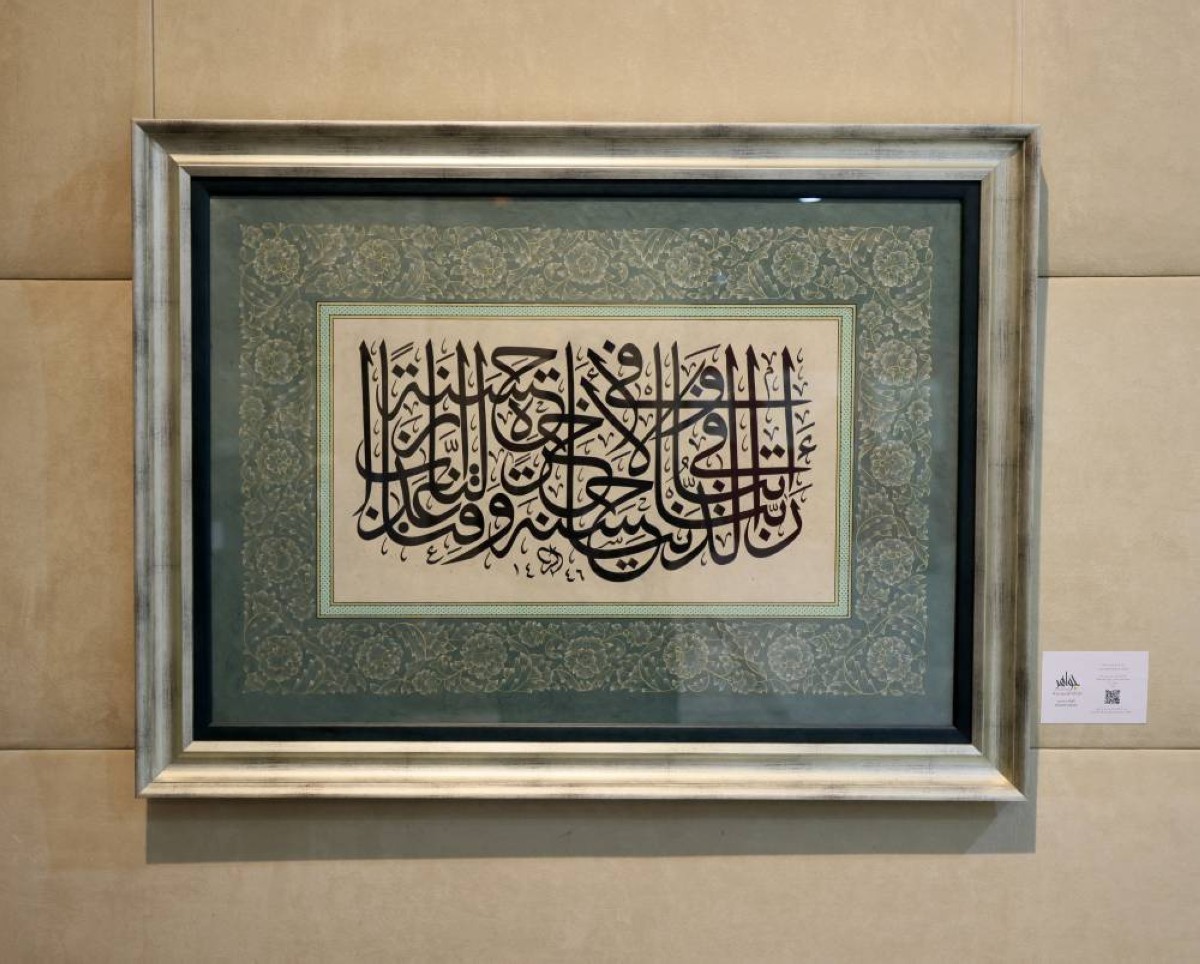 ربنا آتنا في الدنيا حسنة وفي الآخرة حسنة وقنا عذاب النار
١٤٤٦
جواهر